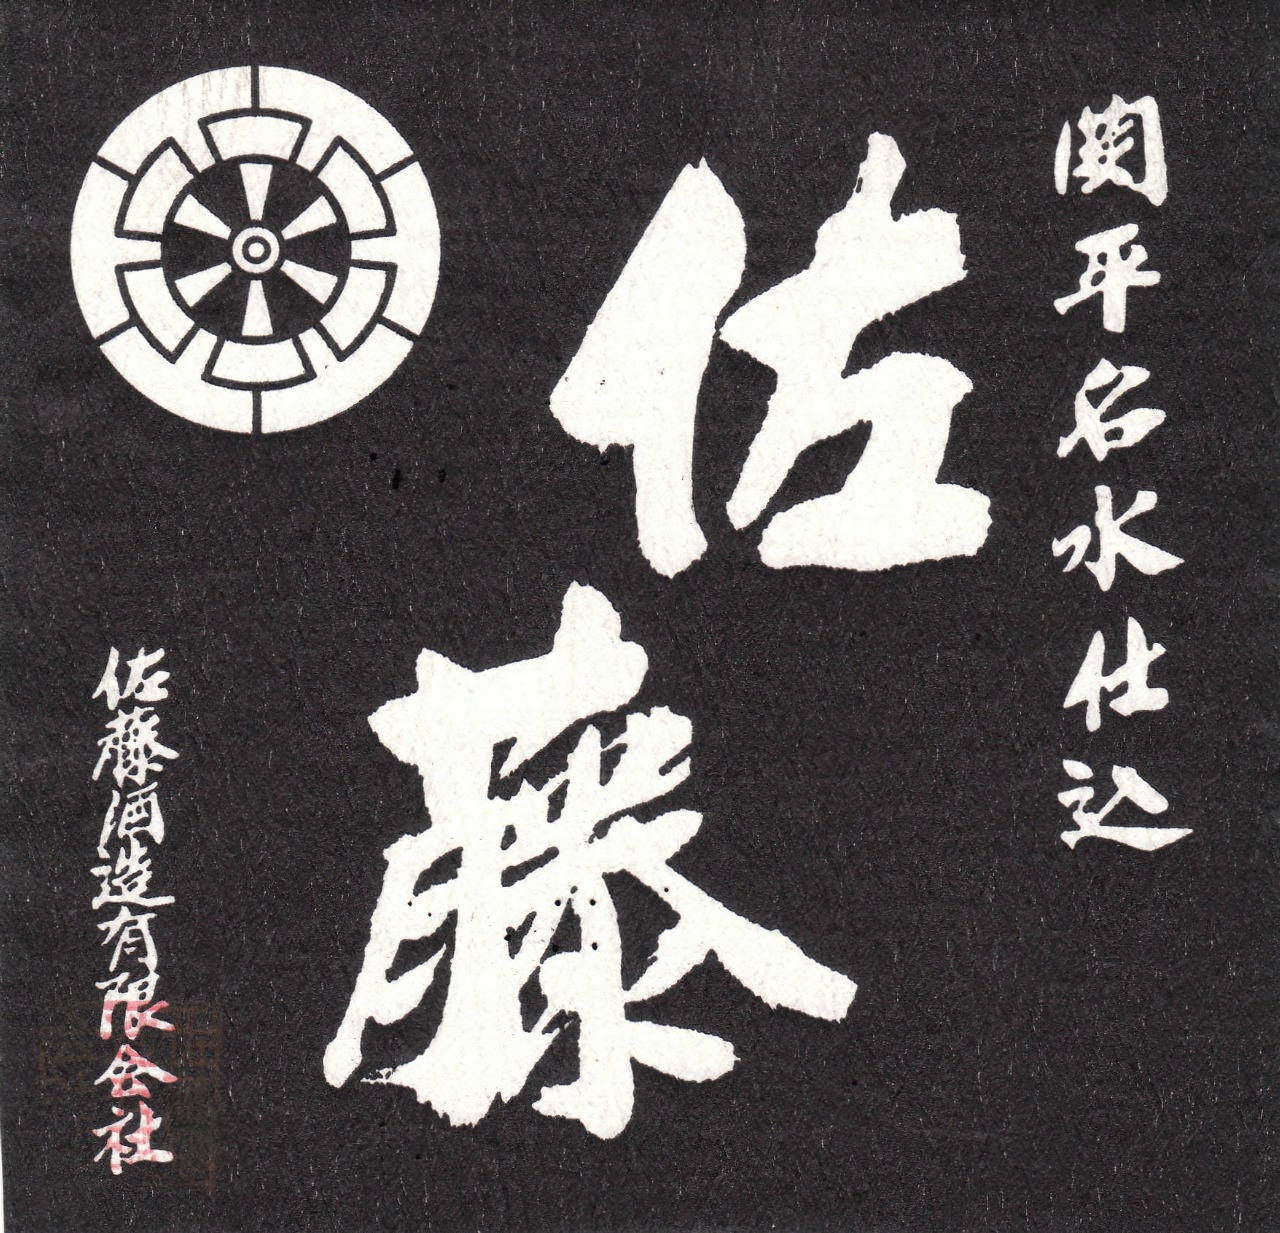 関平名水仕込
佐藤
佐藤酒造有限会社